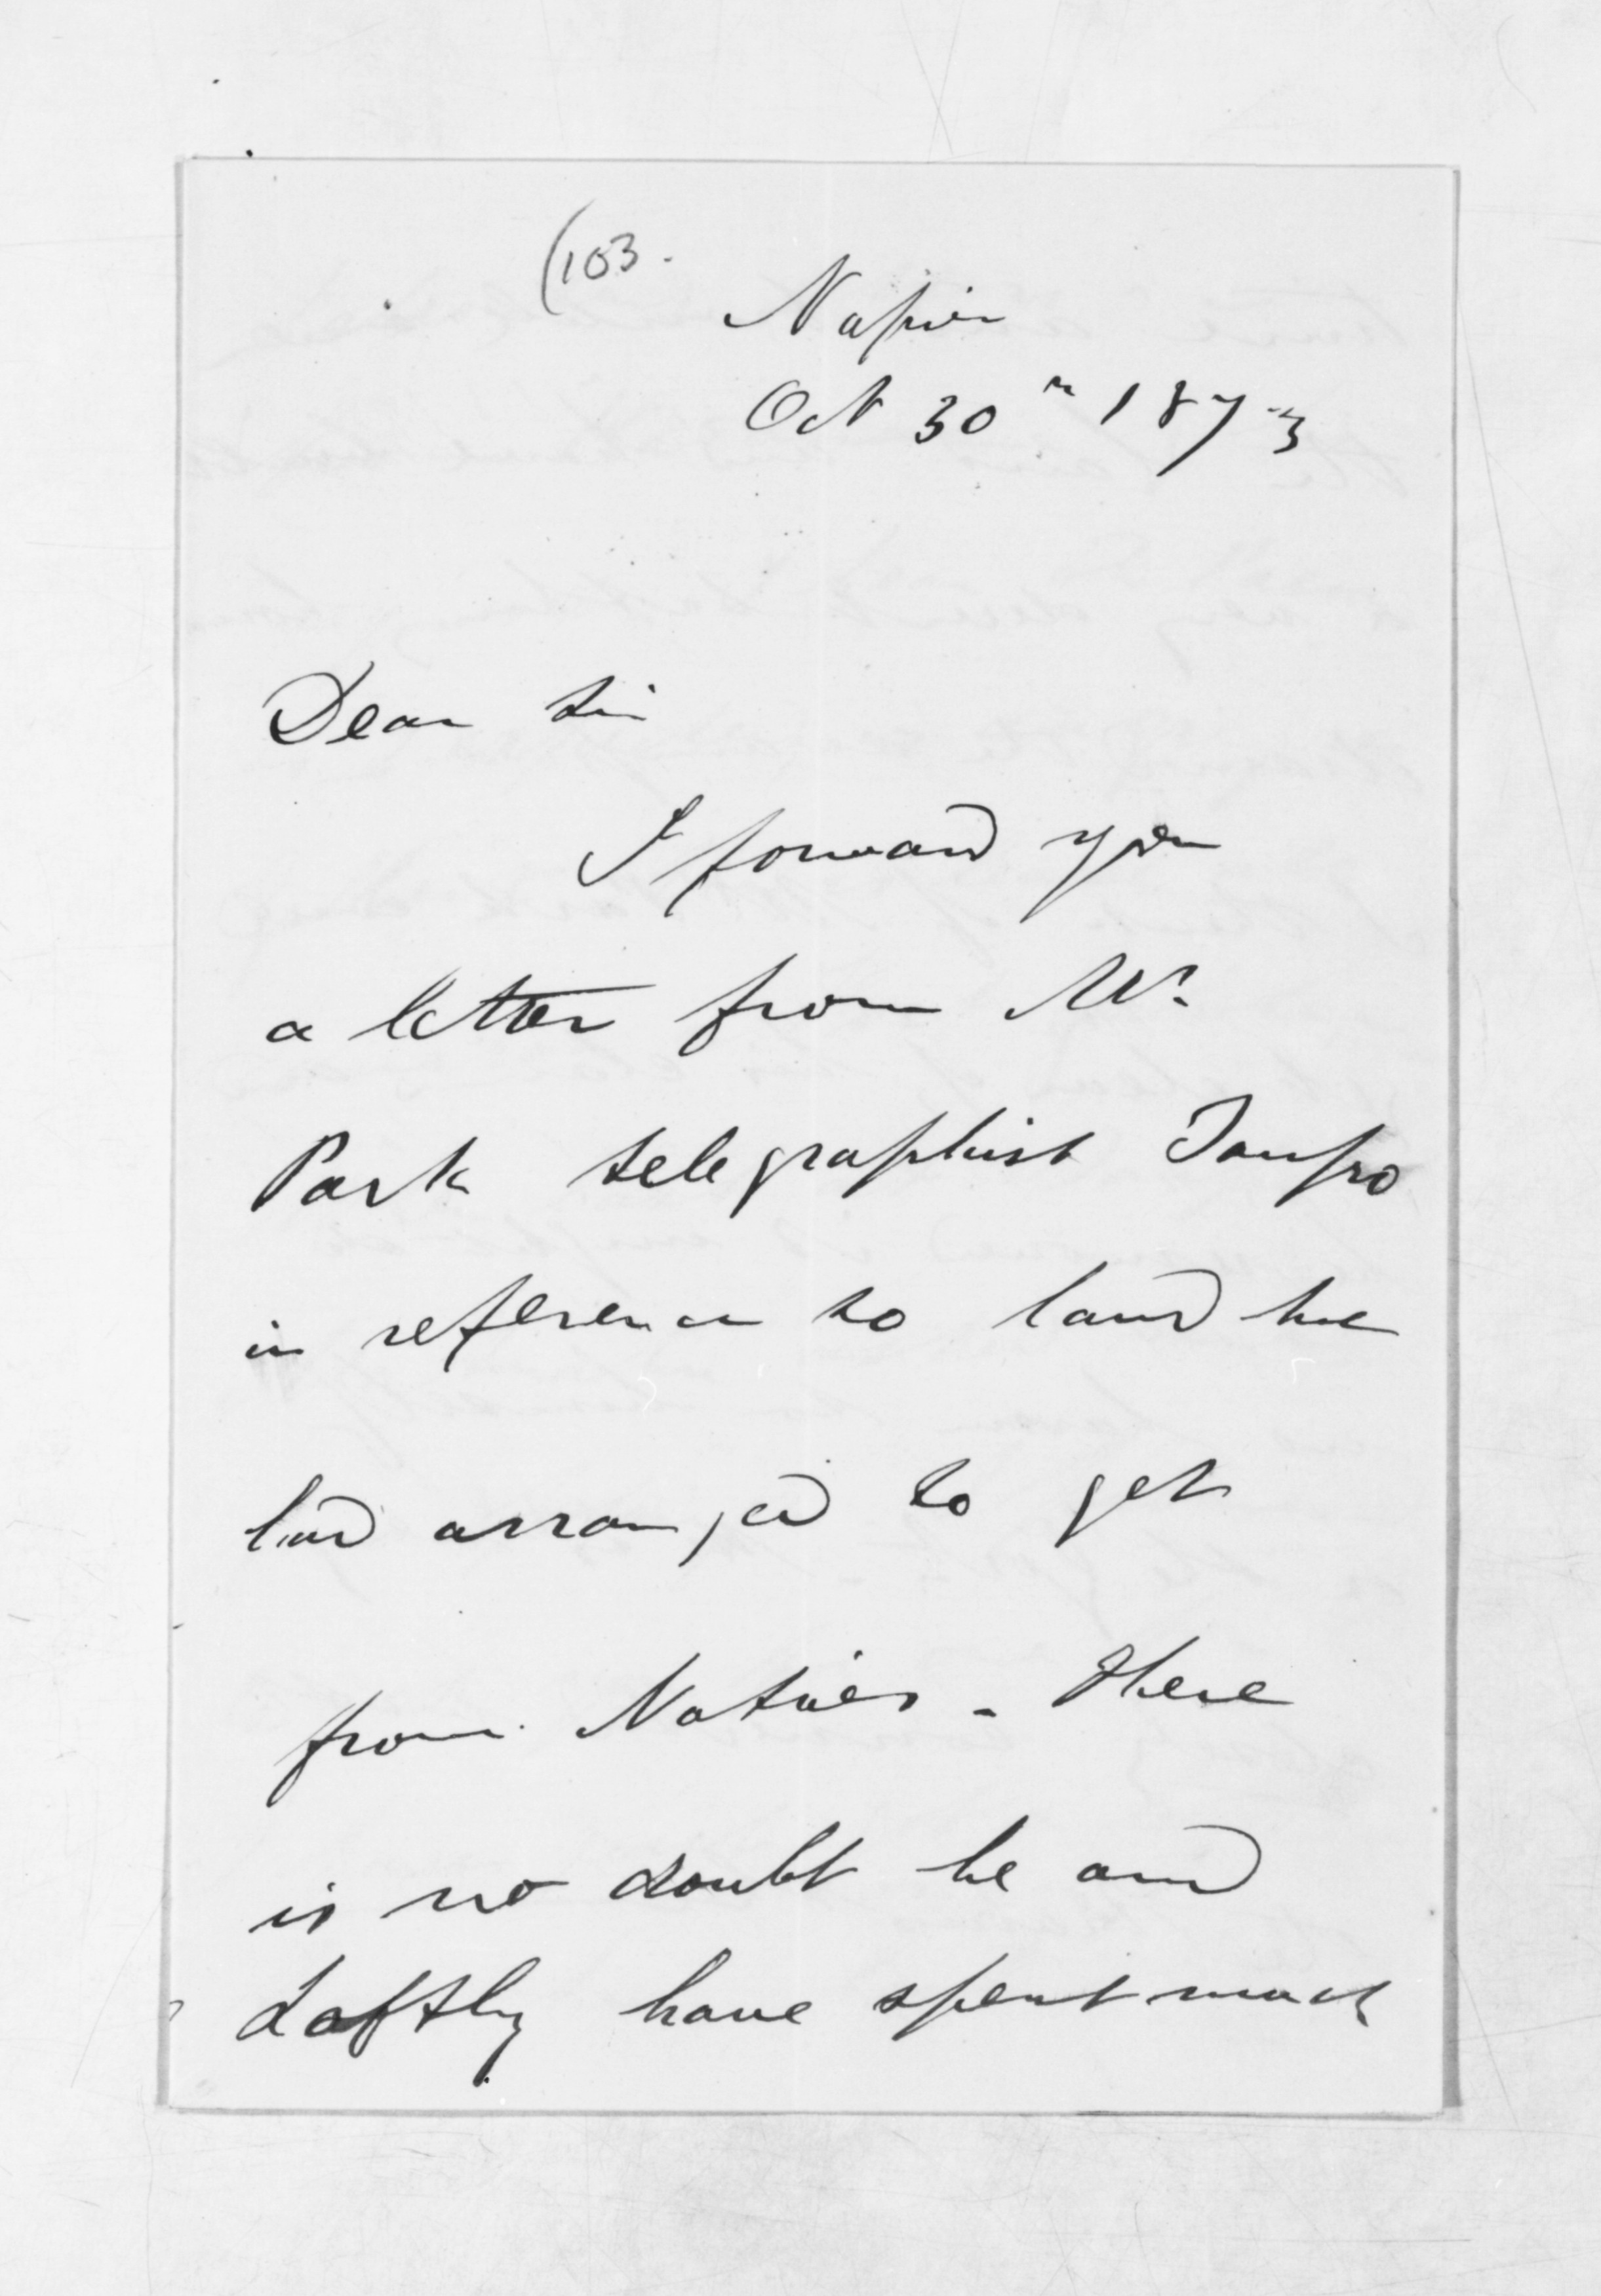 (103.
Napier
Oct 30th 1873
Dear Sir
I forward you
a letter from Mr.
Park telegraphist Taupo
in reference to land he
had arranged to get
from Natives - There
is no doubt he and
Loftley have spent much